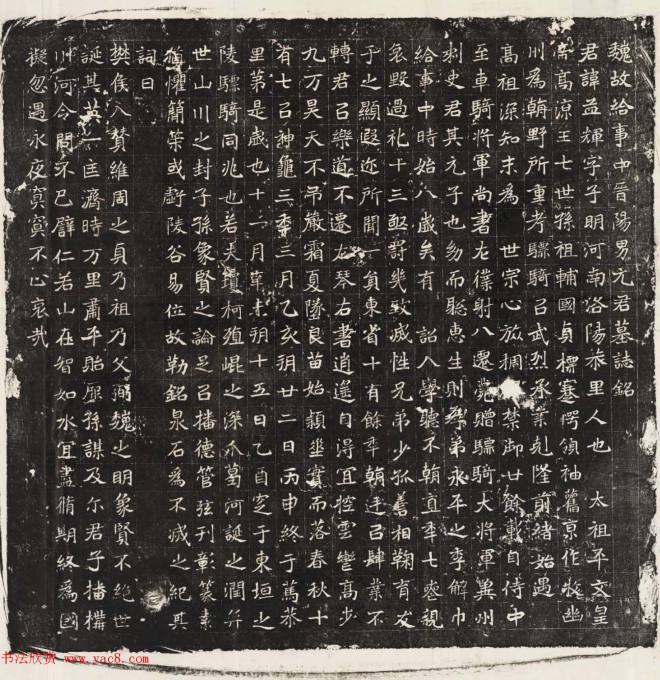 魏故給事中晉陽男元君墓誌銘
君諱孟輝字子明河南洛陽恭里人也 太祖平文皇
帝高涼王七世孫祖輔國貞標蹇愕領袖舊京作牧幽
州爲朝野所重考驃騎以武烈承業剋隆前緒始遇
高祖深知末爲 世宗心旅擁禁御廿餘載自侍中
至車騎將軍尚書左僕射八遷薨贈驃騎大將軍冀州
刺史君其元子也幼而聡惠生則孝弟永平之季解巾
給事中時始八歲矣有 詔入學聽不朝直年七喪親
哀毀過礼十三亟罸幾致滅性兄弟少孤善相鞠育友
于之顯遐迩所聞一負東省十有餘年朝廷以肆業不
轉君以樂道不遷左琴右書逍遙自得宜控雲鸞高步
九万昊天不吊嚴霜夏墜良苗始穎華實而落春秋十
有七以神龜三年三月乙亥朔廿二日丙申終于篤恭
里第是歲也十一月辛未朔十五日乙酉窆于東垣之
陵驃騎同兆也若夫瓊柯殖崐之深爪葛河誕之潤并
世山川之封子孫象賢之論足以播德管弦刊彰篆素
猶懼簡策或虧陵谷易位故勒銘泉石爲不滅之紀其
詞曰
樊侯入贊維周之貞乃祖乃父弼魏之明象賢不絕世
誕其英一匡濟時万里肅平貽厥孫謀及尔君子播構
州河令問不已譬仁若山在智如水宜盡脩期終爲國
擬忽遇永夜寘寘不心哀哉
书法欣赏 www.yac8.com